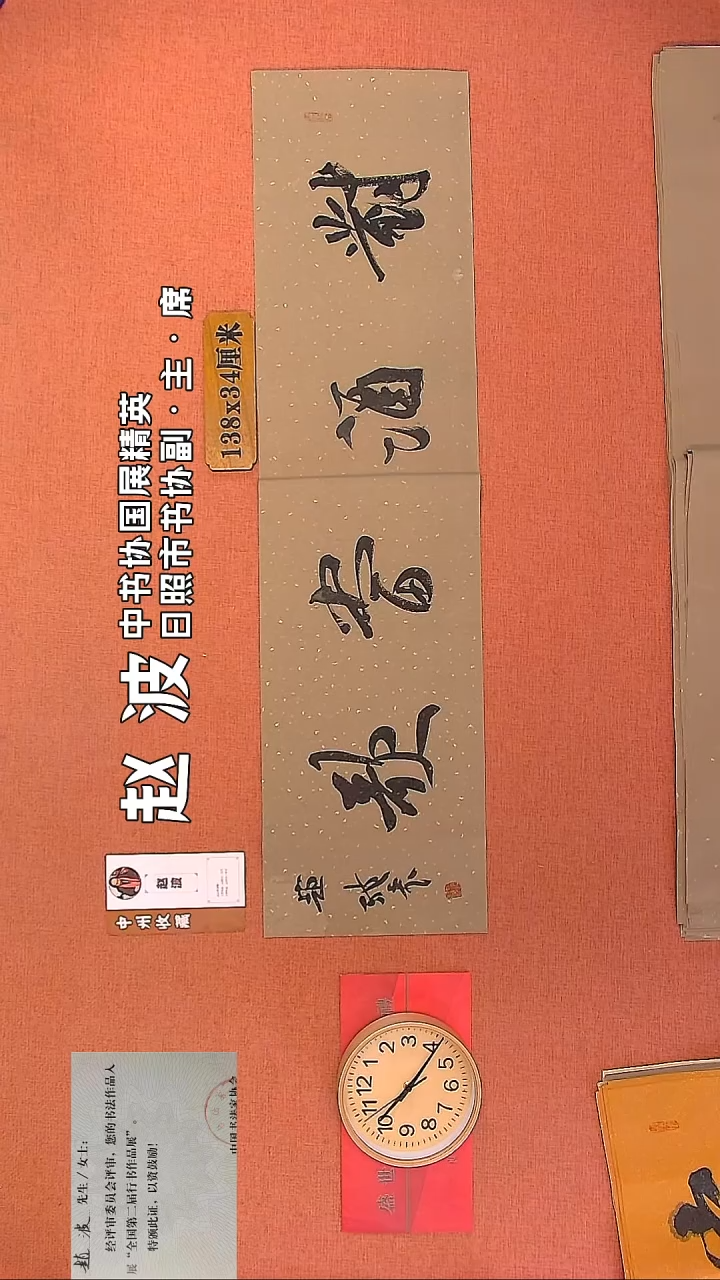 赵波
中书协国展精英
日照市书协副·主·席
138x34厘米
對酒當歌
中州收藏
赵波
赵波 先生/女士:
经评审委员会评审，您的书法作品入
展“全国第二届行书作品展”。
特颁此证，以资鼓励!
中国书法家协会
盛世
12
1
2
3
4
5
6
7
8
9
10
11